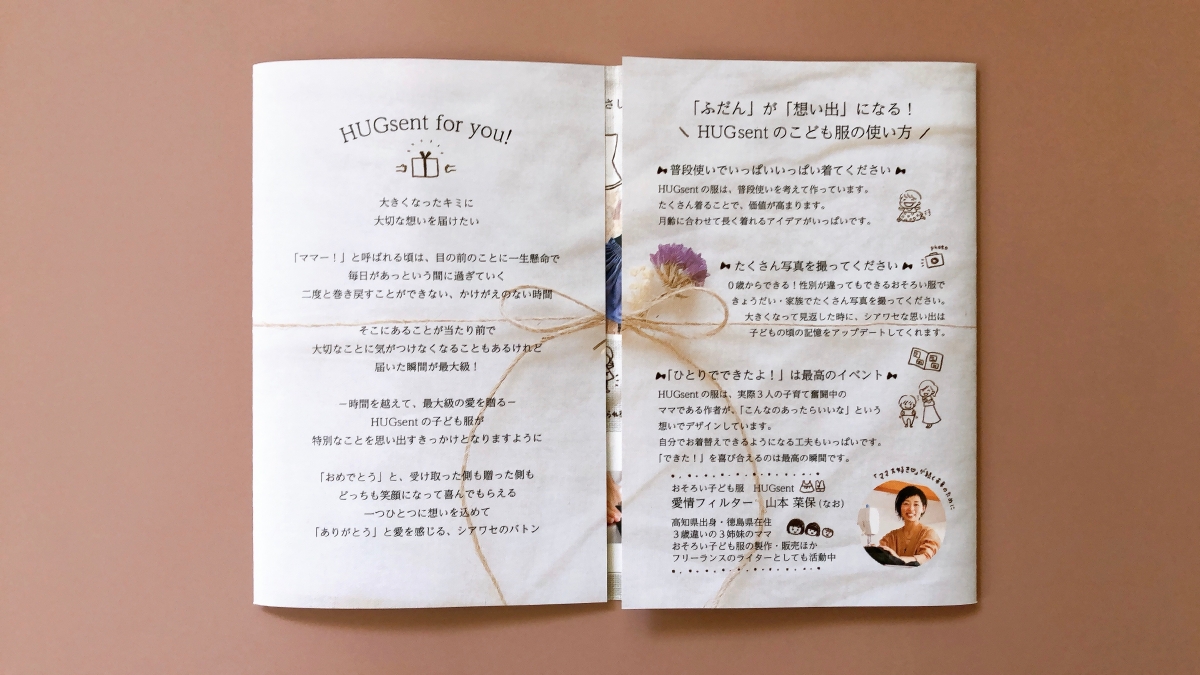 HUGsent for you!
大きくなったキミに
大切な想いを届けたい
「ママー！」と呼ばれる頃は、目の前のことに一生懸命で
毎日があっという間に過ぎていく
二度と巻き戻すことができない、かけがえのない時間
そこにあることが当たり前で
大切なことに気がつけなくなることもあるけれど
届いた瞬間が最大級！
－時間を越えて、最大級の愛を贈る－
HUGsentの子ども服が
特別なことを思い出すきっかけとなりますように
「おめでとう」と、受け取った側も贈った側も
どっちも笑顔になって喜んでもらえる
一つひとつに想いを込めて
「ありがとう」と愛を感じる、シアワセのバトン
さし
「ふだん」が「想い出」になる！
HUGsentのこども服の使い方
普段使いでいっぱいいっぱい着てください
HUGsentの服は、普段使いを考えて作っています。
たくさん着ることで、価値が高まります。
月齢に合わせて長く着れるアイデアがいっぱいです。
photo
たくさん写真を撮ってください
０歳からできる！性別が違ってもできるおそろい服で
きょうだい・家族でたくさん写真を撮ってください。
大きくなって見返した時に、シアワセな思い出は
子どもの頃の記憶をアップデートしてくれます。
「ひとりでできたよ！」は最高のイベント
HUGsentの服は、実際３人の子育て奮闘中の
ママである作者が、「こんなのあったらいいな」という
想いでデザインしています。
自分でお着替えできるようになる工夫もいっぱいです。
「できた！」を喜び合えるのは最高の瞬間です。
おそろい子ども服　HUGsent
愛情フィルター　山本 菜保（なお）
高知県出身・徳島県在住
３歳違いの３姉妹のママ
おそろい子ども服の製作・販売ほか
フリーランスのライターとしても活動中